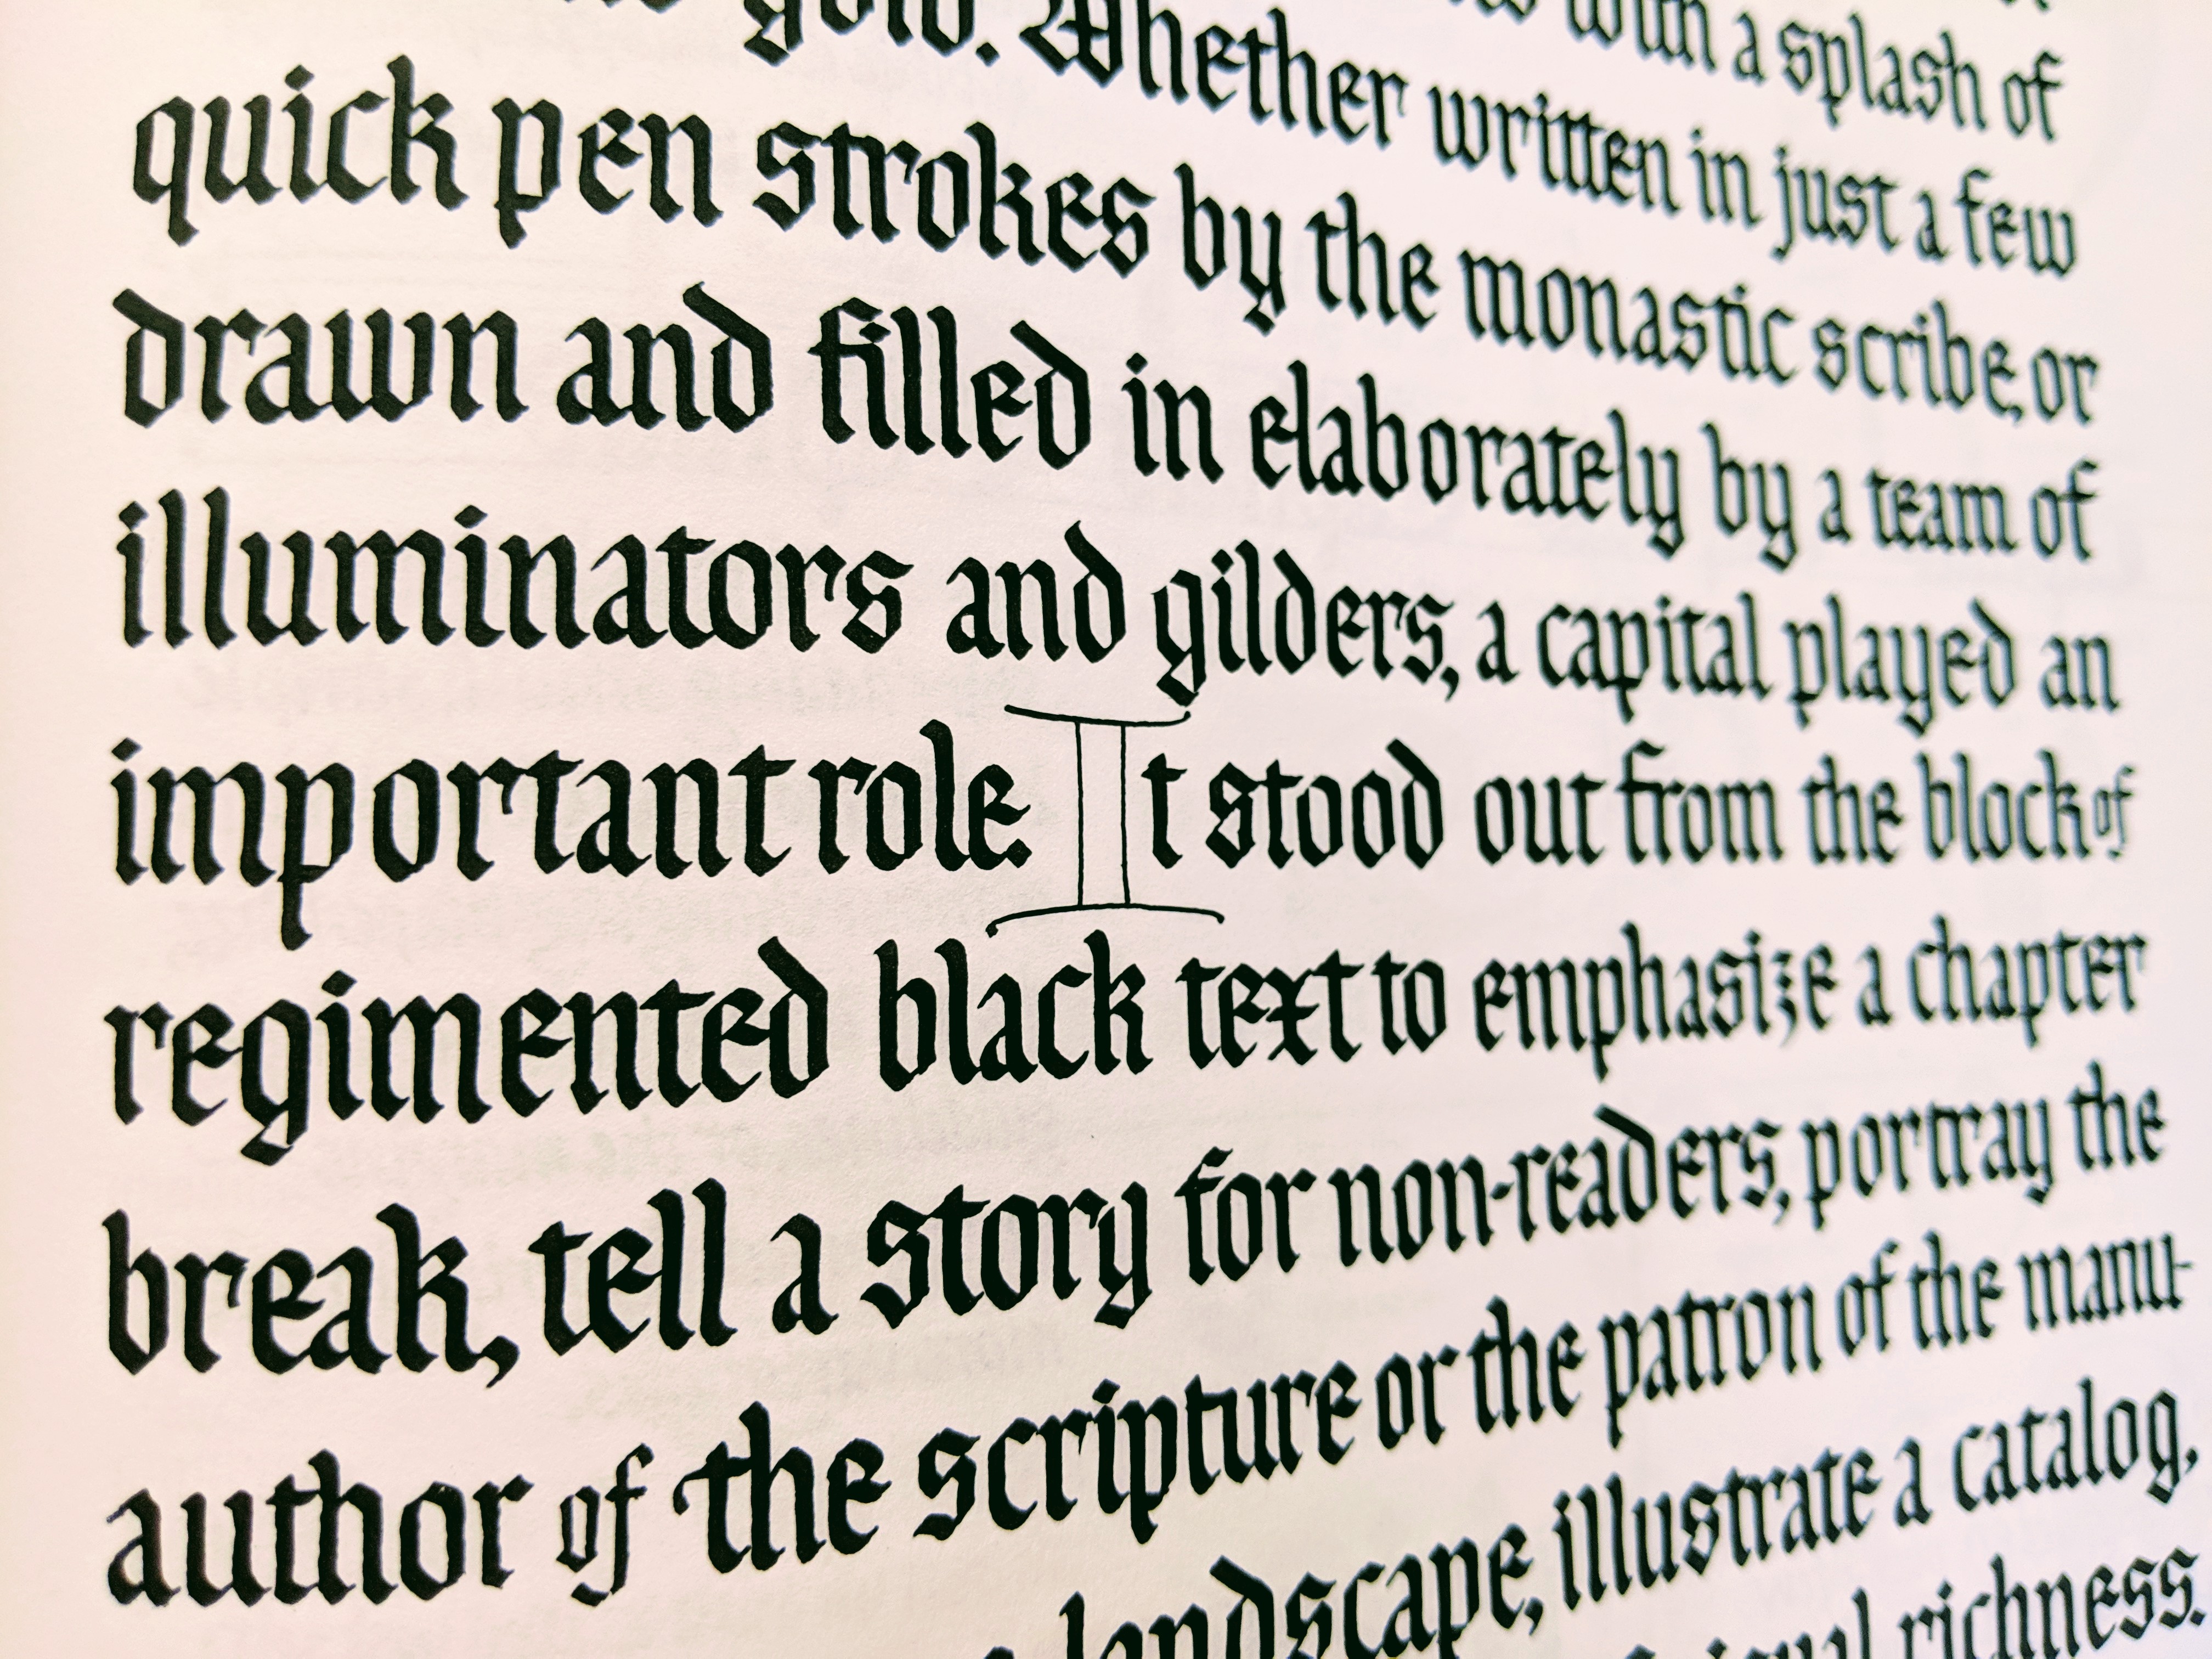 with a splash of
gold. Whether written in just a few
quick pen strokes by the monastic scribe, or
drawn and filled in elaborately by a team of
illuminators and gilders, a capital played an
important role. It stood out from the block of
regimented black text to emphasize a chapter
break, tell a story for non-readers, portray the
author of the scripture or the patron of the manu-
landscape, illustrate a catalog,
richness.